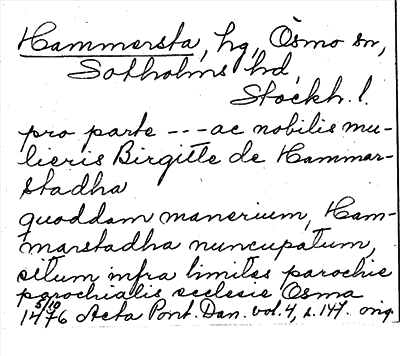 Hammersta, hg, Ösmo sn,
Sotholms hd,
Stockh. l.
pro parte --- ac nobilis mu-
lieris Birgitte de Hammar-
stadha
quoddam manerium, Ham-
marstadha nuncupatum,
situm infra limites parochie
parochialis ecclesie Ösma
5/10
1476 Acta Pont. Dan. vol. 4, s. 147. orig